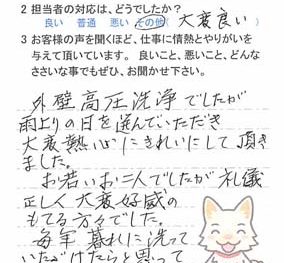 2 担当者の対応は、どうでしたか?
良い 普通 悪い その他( 大変良い )
3 お客様の声を聞くほど、仕事に情熱とやりがいを
与えて頂いています。良いこと、悪いこと、どんな
ささいな事でもぜひ、お聞かせ下さい。
外壁高圧洗浄でしたが
雨上りの日を選んでいただき
大変熱心にきれいにして頂き
ました。
お若いお二人でしたが礼儀
正しく大変好感の
もてる方々でした。
毎年暮れに洗って
いただけたらと思って